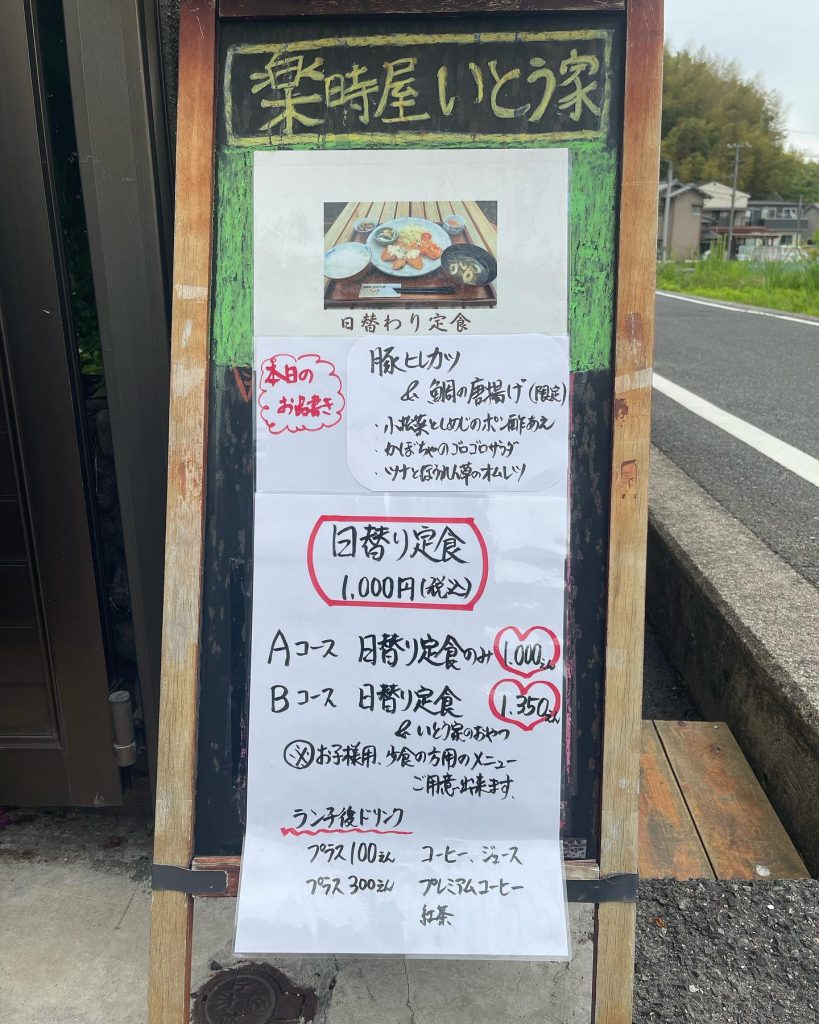 楽時屋いとう家
日替わり定食
本日の
お品書き
豚ヒレカツ
& 鯛の唐揚げ(限定)
・小松菜としめじのポン酢あえ
・かぼちゃのゴロゴロサラダ
・ツナとほうれん草のオムレツ
日替り定食
1,000円(税込)
Aコース 日替り定食のみ 1.000えん
Bコース 日替り定食 1.350えん
& いとう家のおやつ
※お子様用、少食の方用のメニュー
ご用意出来ます.
ランチ後ドリンク
プラス100えん コーヒー、ジュース
プラス300えん プレミアムコーヒー
紅茶